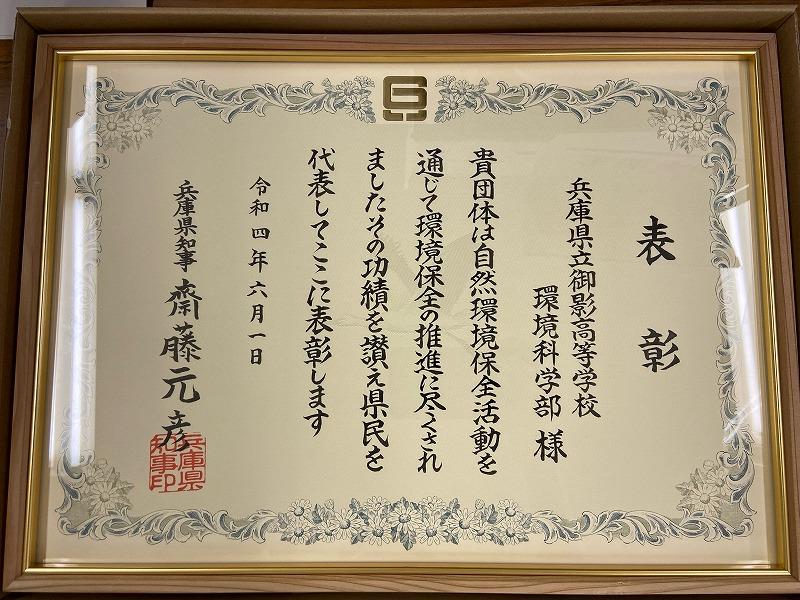 表彰
兵庫県立御影高等学校
環境科学部 様
貴団体は自然環境保全活動を
通じて環境保全の推進に尽くされ
ましたその功績を讃え県民を
代表してここに表彰します
令和四年六月一日
兵庫県知事 齋藤元彦
兵庫県
知事印